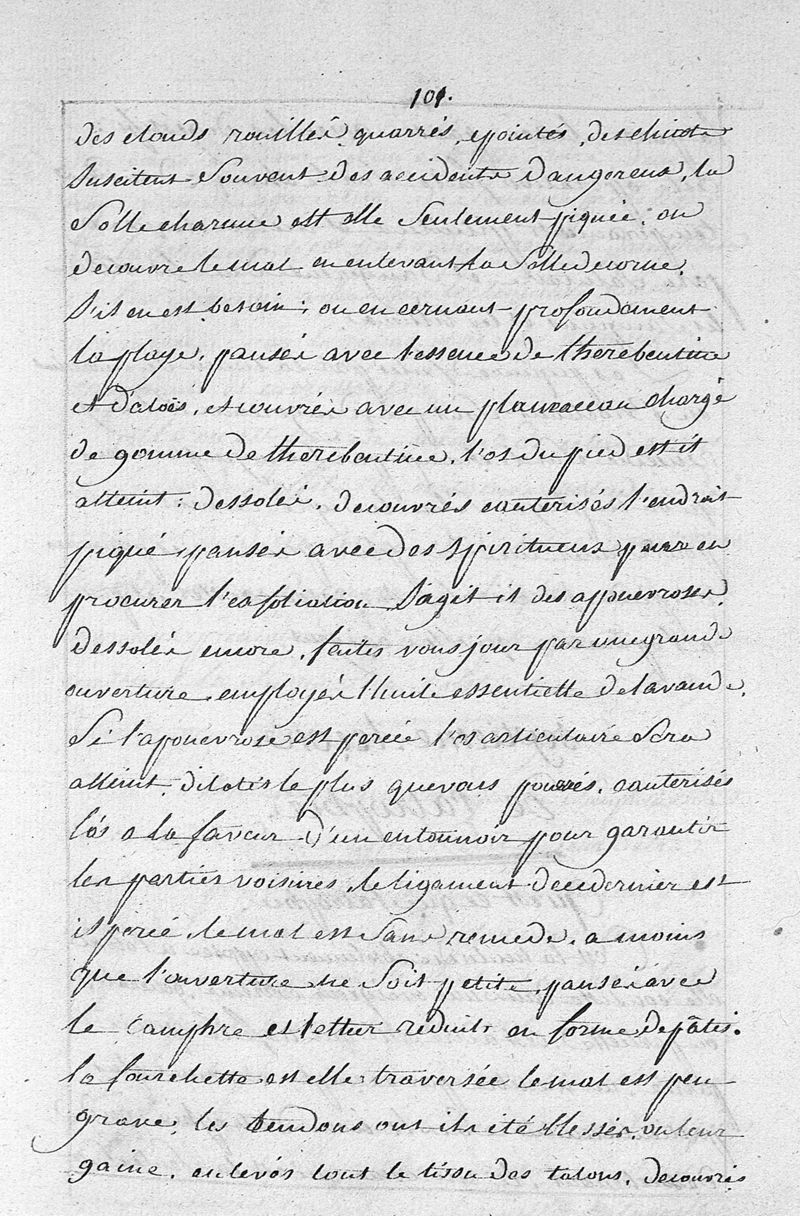 101.
des clouds rouillés, quarrés, epointés, des chicots
suscitent souvent des accidents dangereux, la
solle charnue est elle seulement piquée, on
decouvre le mal en enlevant la solle de corne,
s'il en est besoin; ou en cernant profondement
la playe, pansés avec l'essence de therebentine
et d'aloës, et couvrés avec un plumaceau chargé
de gomme de therebentine, l'os du pied est il
atteint; dessolés, decouvrés cauterisés l'endroit
piqué, pansés avec des spiritueux pour en
procurer l'exfoliation S'agit il des aponevroses,
dessolés encore, faites vous jour par une grande
ouverture, employés l'huile essentielle de lavande,
Si l'aponevrose est percée l'os articulaire sera
atteint, dilatés le plus que vous pourrés, cauterisés
l'os a la faveur d'un entonnoir pour garantir
les parties voisines, le ligament de ce dernier est
il percé, le mal est sans remede, a moins
que l'ouverture ne soit petite, pansés avec
le camphre et l'ether reduits en forme de pâtes.
la fourchette est elle traversée le mal est peu
grave, les tendons ont ils été blessés, ou leur
gaine, enlevés tout le tissu des talons, decouvrés